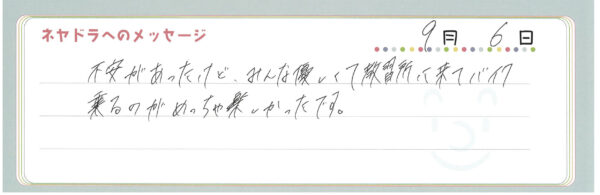 ネヤドラへのメッセージ
9月 6日
不安があったけど、みんな優しくて教習所って来てバイク
乗るのがめっちゃ楽しかったです。